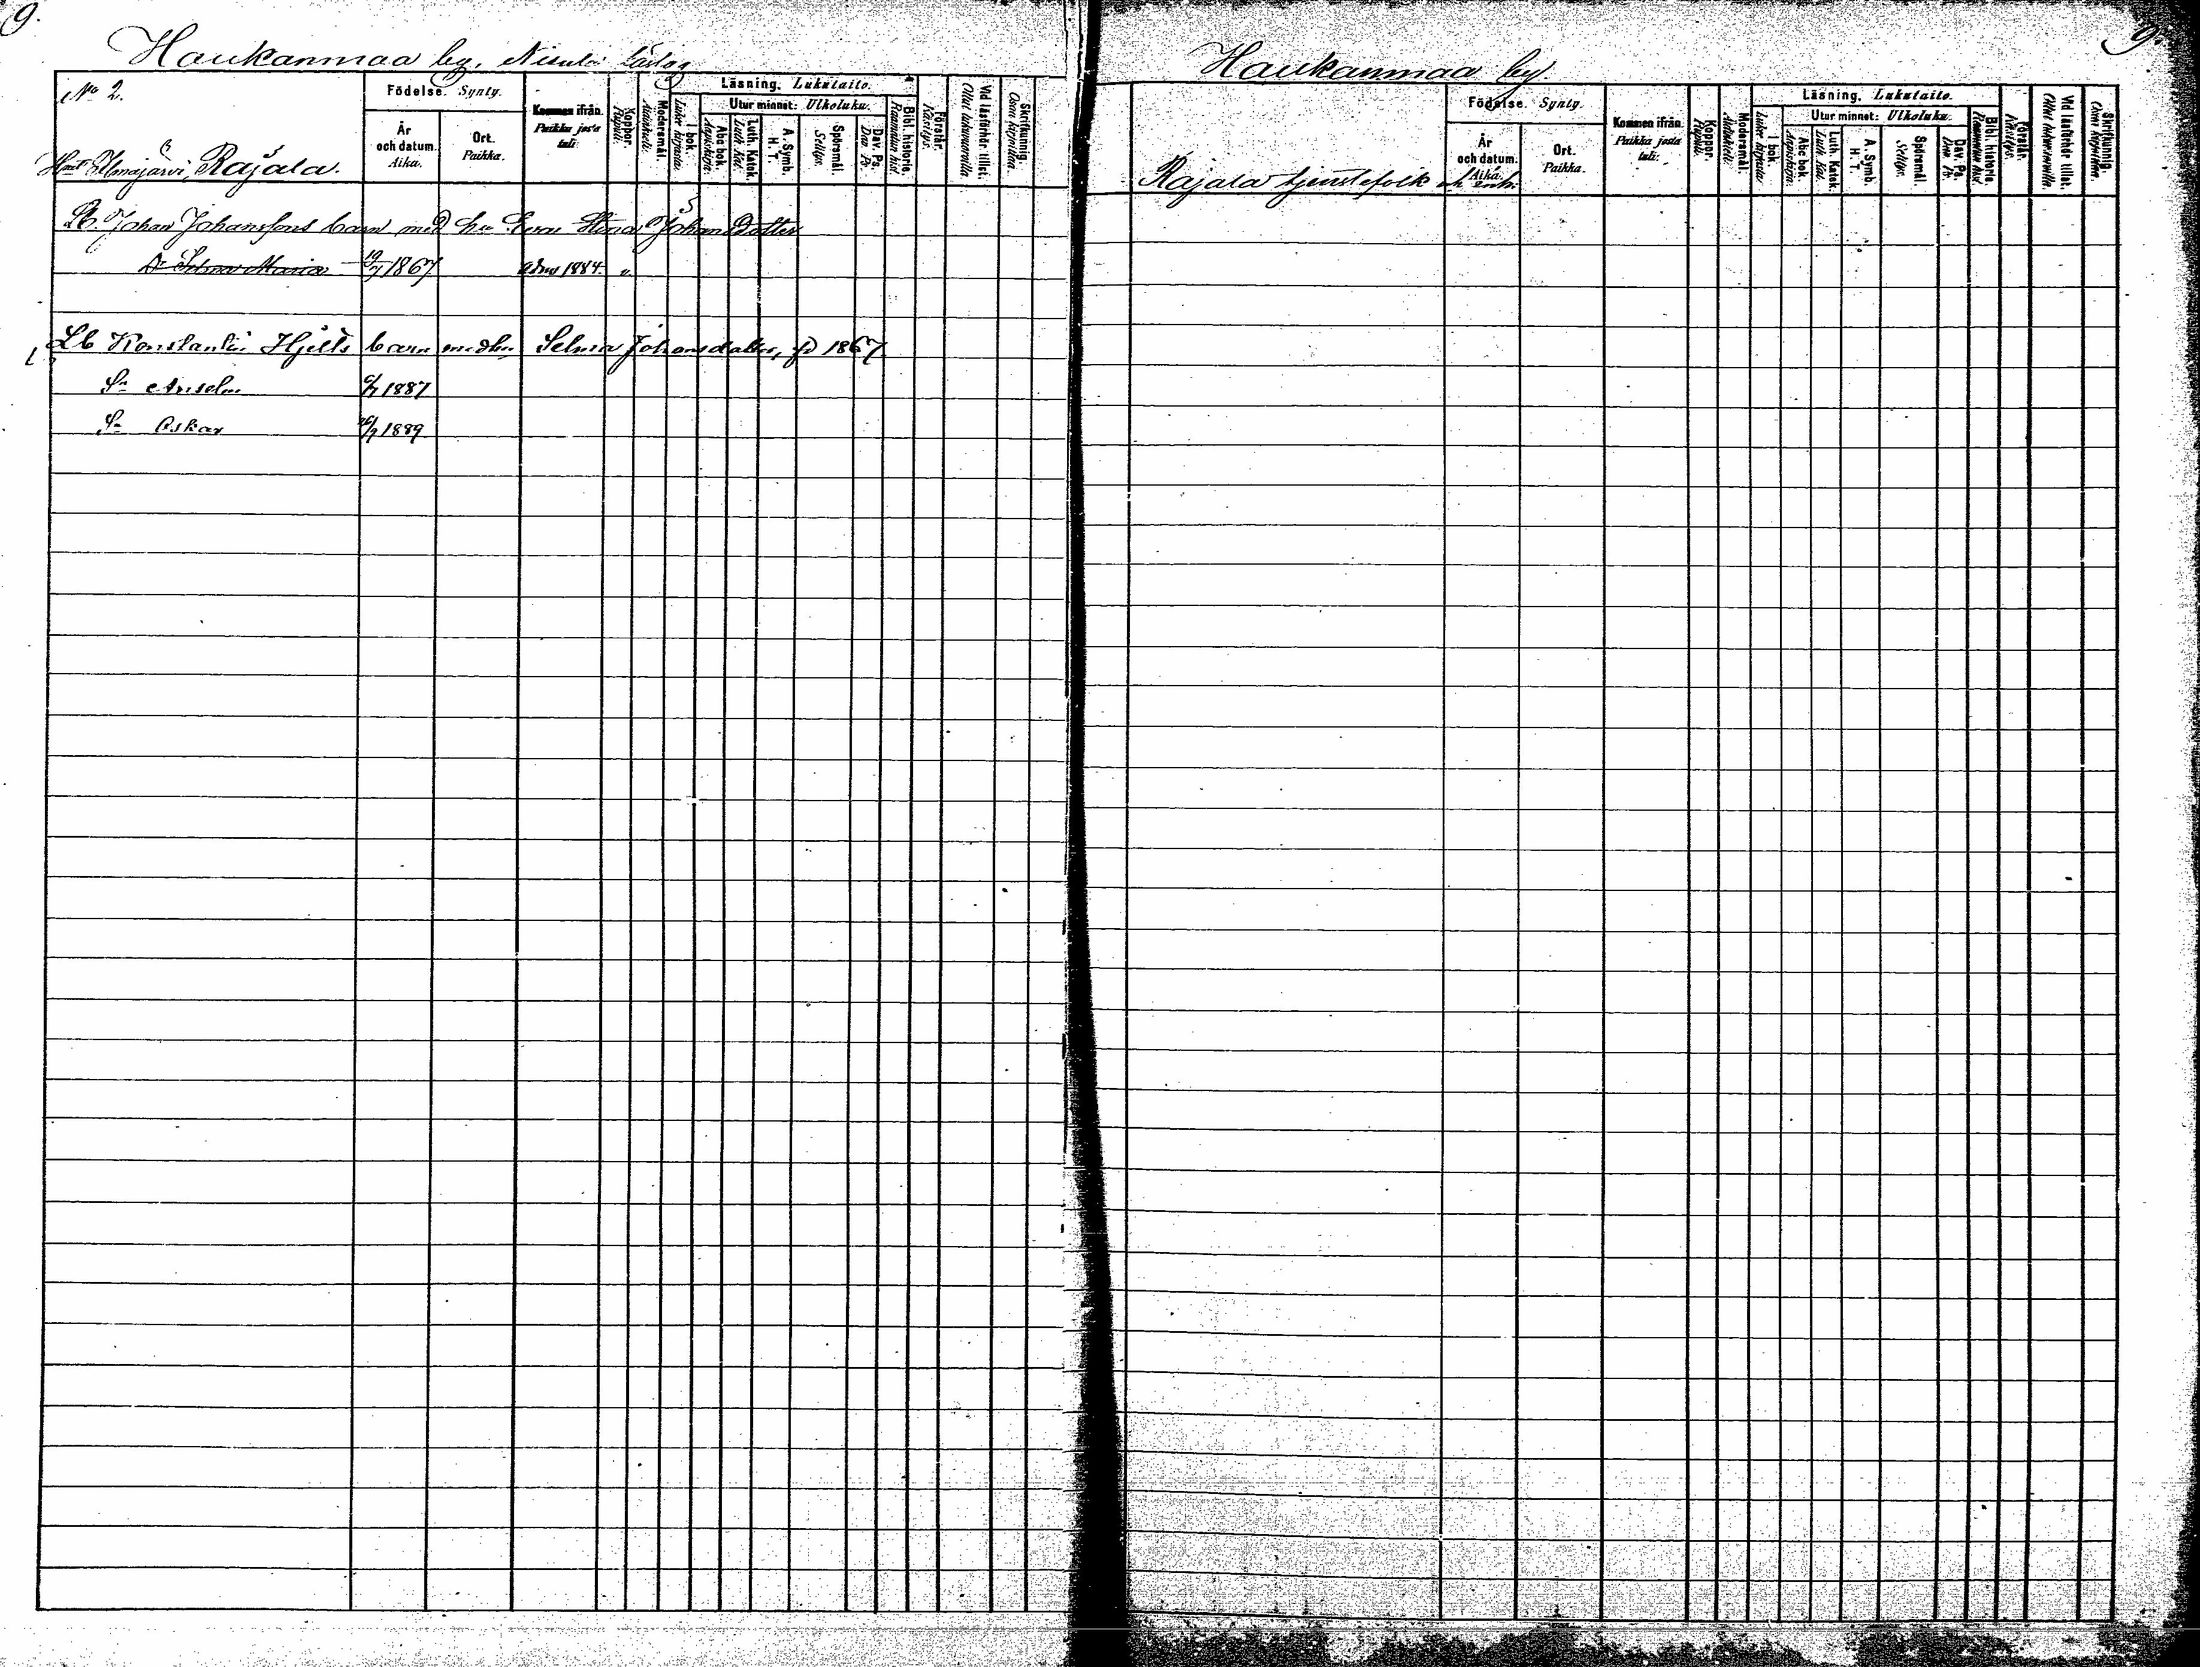 9.
Haukanmaa by. Nisula
No 2.
Ilmajärvi, Rajala.
Födelse. Synty.
År och datum. Aika.
Ort. Paikka.
Kommen ifrån. Paikka josta tuli:
Koppor. Rupuli.
Modersmål. Äidinkieli.
Läsning. Lukutaito.
I bok. Luku kirjasta.
Utur minnet: Ulkoluku.
Abc bok. Aapiskirja.
Luth. Katek. Luth. Kat.
A. Symb. H. T.
Spörsmål. Selitys.
Dav. Ps. Dav. Ps.
Bibl. historia. Raamatun hist.
Förstår. Käsitys.
Vid läsförhör tillst. Ollut lukuvuorolla.
Skrifkunnig. Osaa kirjoittaa.
Johan Johanssons barn med hu Eva Stina Johansdotter
Dr Selma Maria 19/7 1867 1884
Lb Konstantin Hjelts barn med hu Selma Johansdotter, fd 1867
Sn Anselm 1887
Sn Oskar 26/9 1889
9.
Haukanmaa by.
Rajala tjenstefolk och inh.
Födelse. Synty.
År och datum. Aika.
Ort. Paikka.
Kommen ifrån. Paikka josta tuli:
Koppor. Rupuli.
Modersmål. Äidinkieli.
Läsning. Lukutaito.
I bok. Luku kirjasta.
Utur minnet: Ulkoluku.
Abc bok. Aapiskirja.
Luth. Katek. Luth. Kat.
A. Symb. H. T.
Spörsmål. Selitys.
Dav. Ps. Dav. Ps.
Bibl. historia. Raamatun hist.
Förstår. Käsitys.
Vid läsförhör tillst. Ollut lukuvuorolla.
Skrifkunnig. Osaa kirjoittaa.